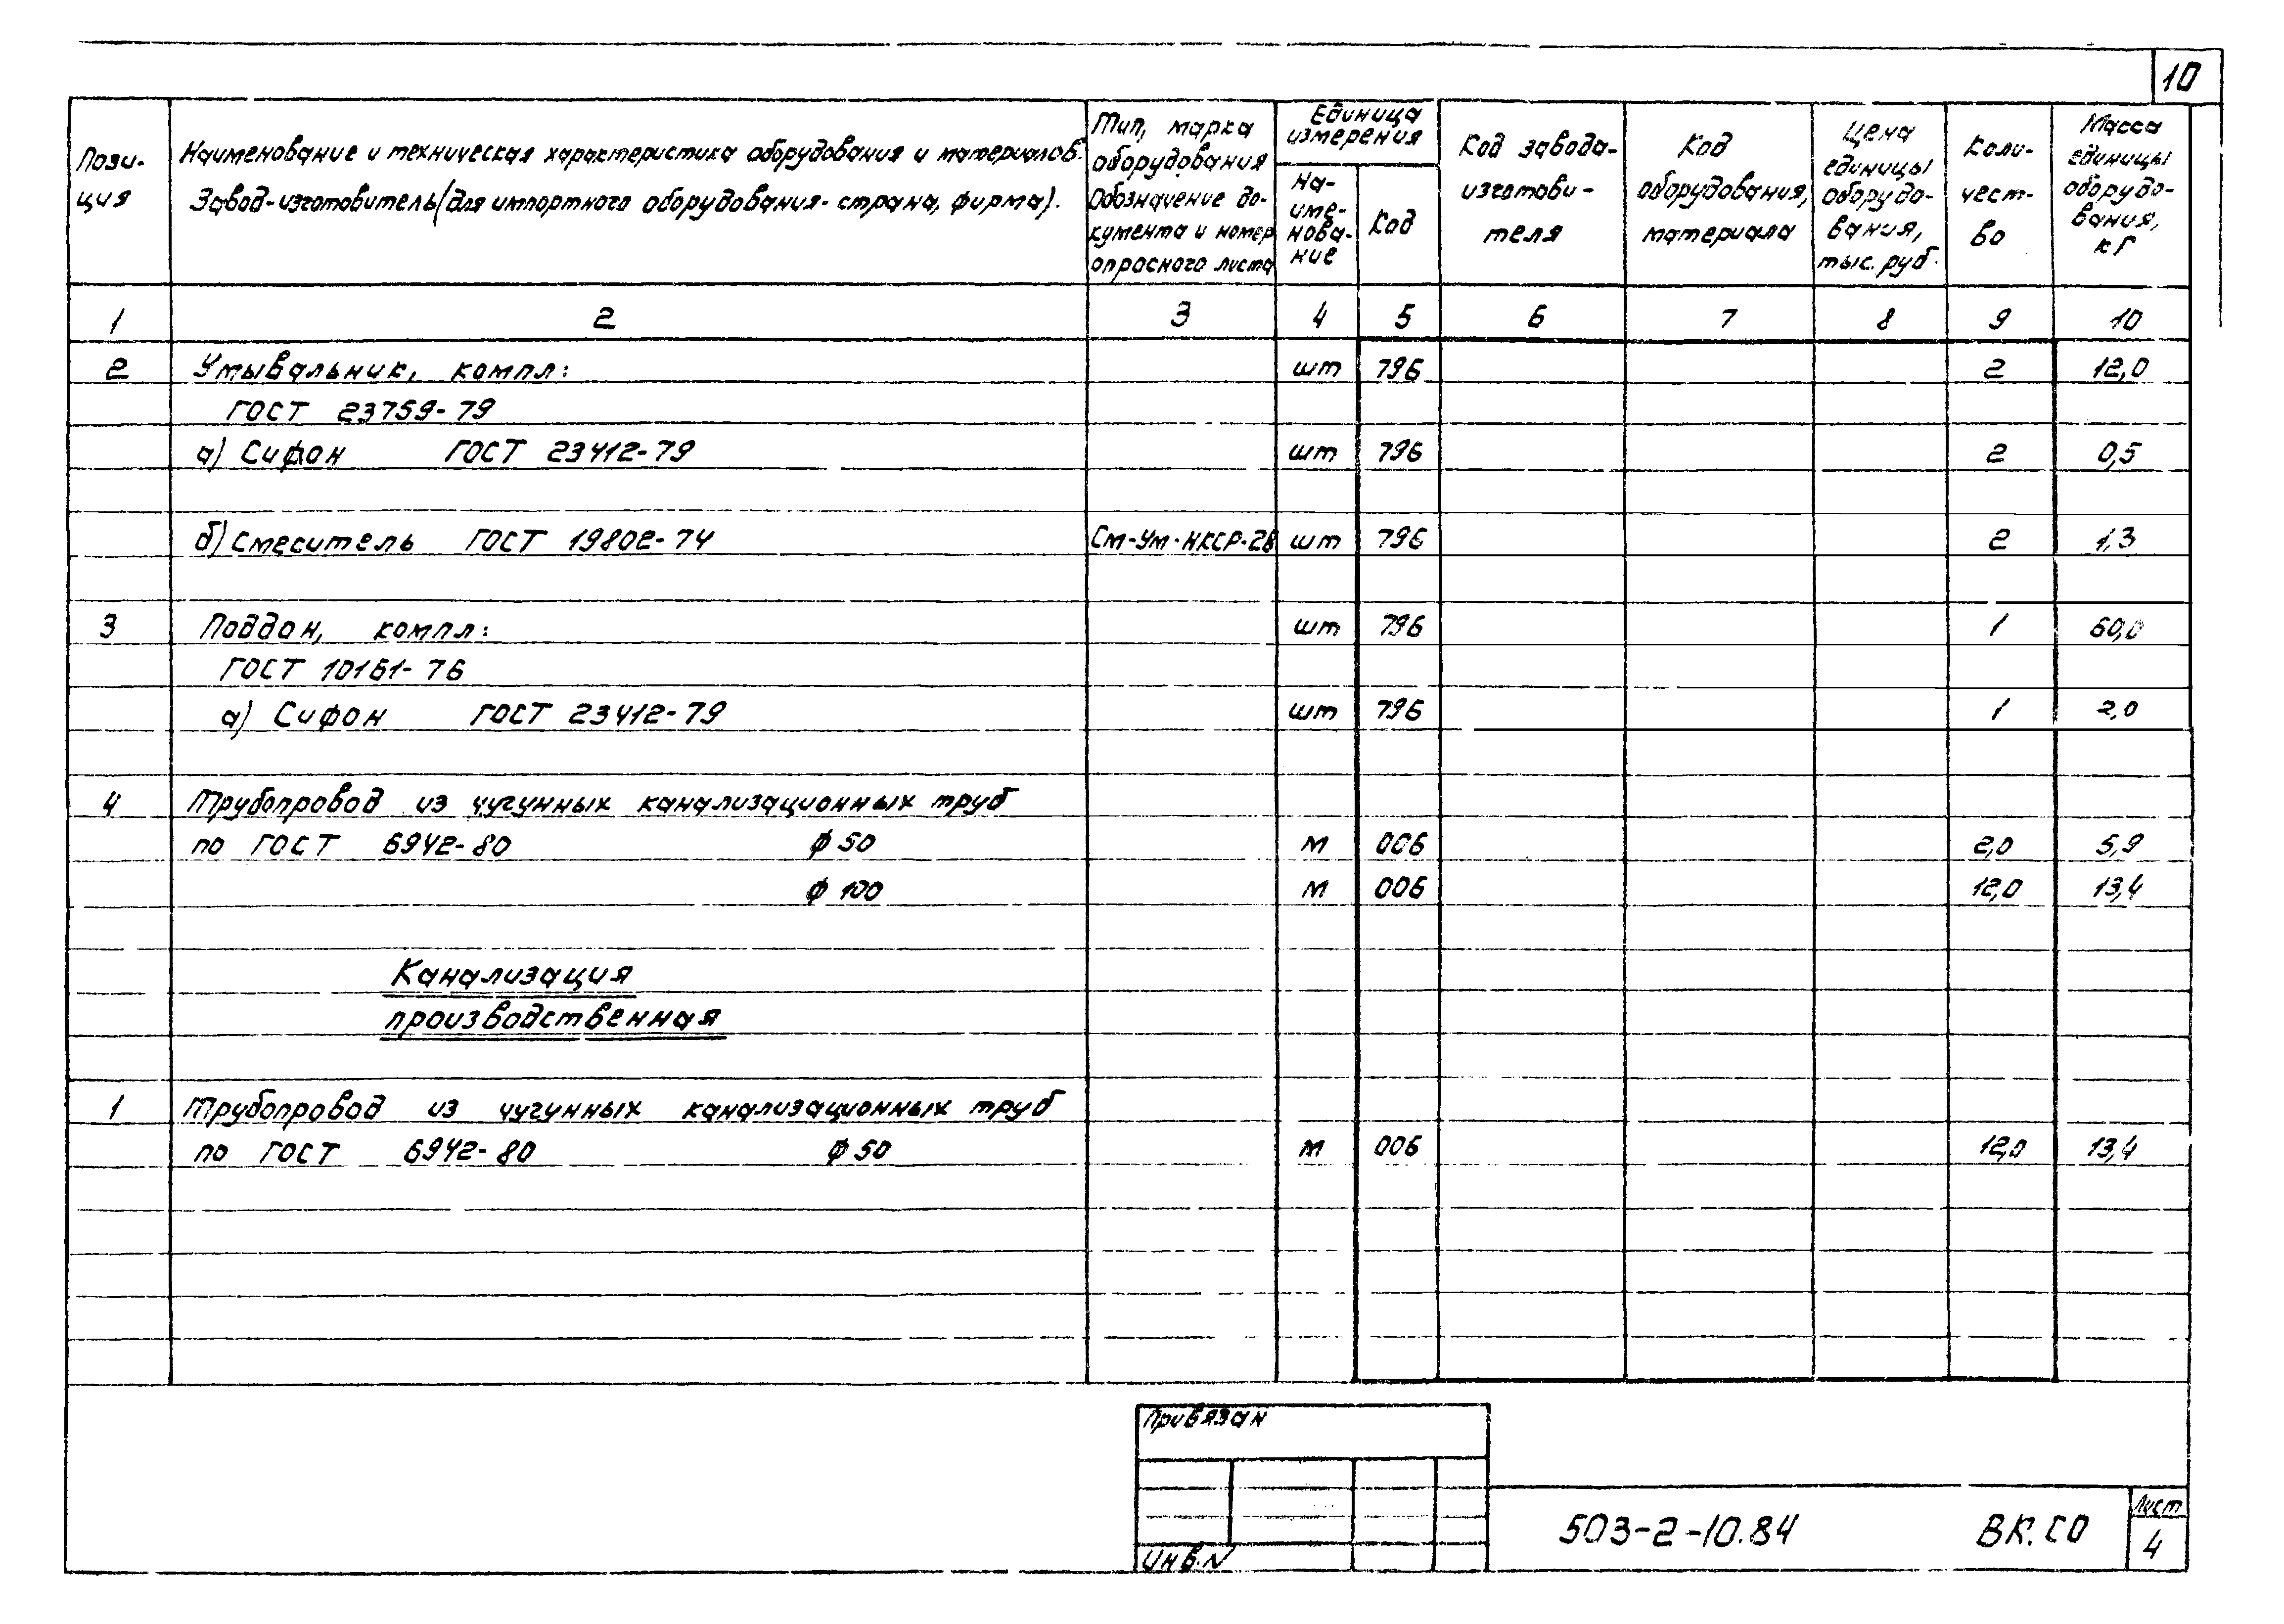 10
Пози-
ция
Наименование и техническая характеристика оборудования и материалов.
Завод-изготовитель (для импортного оборудования - страна, фирма).
Тип, марка
оборудования
Обозначение до-
кумента и номер
опросного листа
Единица
измерения
На-
име-
нова-
ние
Код
Код завода-
изготови-
теля
Код
оборудования,
материала
Цена
единицы
оборудо-
вания,
тыс. руб.
Коли-
чест-
во
Масса
единицы
оборудо-
вания,
кг
1 2 3 4 5 6 7 8 9 10
2 Умывальник, компл: шт 796 2 12,0
ГОСТ 23759-79
а) Сифон ГОСТ 23412-79 шт 796 2 0,5
б) Смеситель ГОСТ 19802-74 См-Ум-НКСР-28 шт 796 2 1,3
3 Поддон, компл: шт 796 1 60,0
ГОСТ 10161-76
а) Сифон ГОСТ 23412-79 шт 796 1 2,0
4 Трубопровод из чугунных канализационных труб
по ГОСТ 6942-80 ф 50 м 006 2,0 5,9
ф 100 м 006 12,0 13,4
Канализация
производственная
1 Трубопровод из чугунных канализационных труб
по ГОСТ 6942-80 ф 50 м 006 12,0 13,4
Привязан
Инв.N
503-2-10.84 ВК.СО
Лист
4